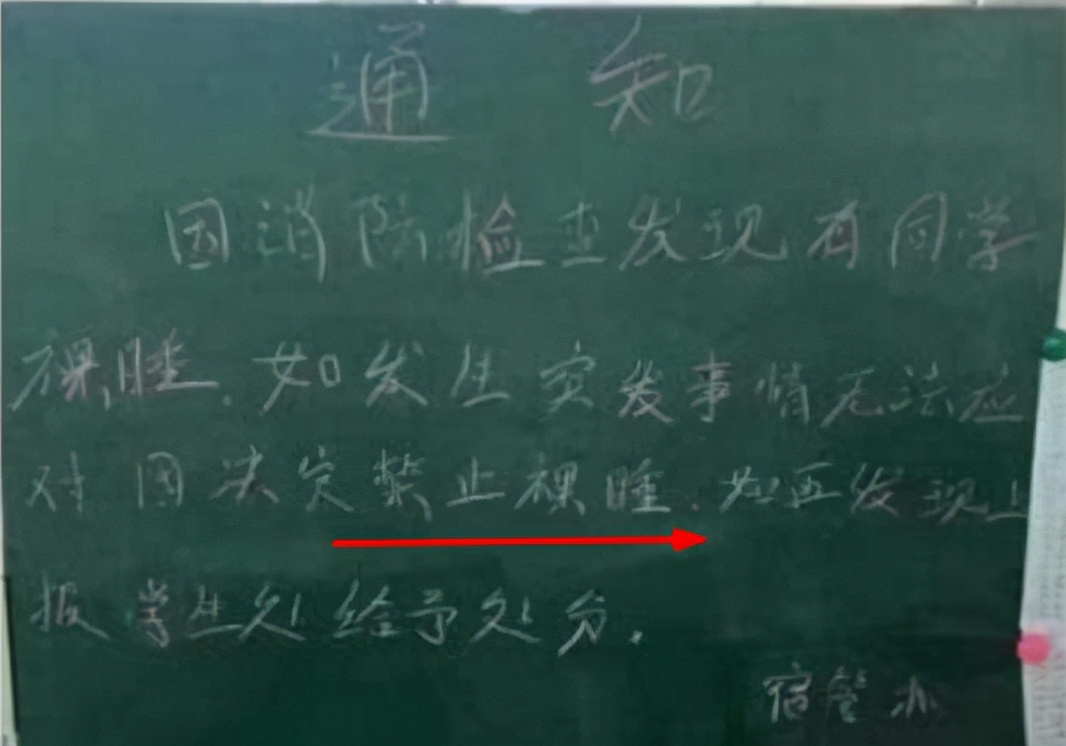 通 知
因消防检查发现有同学
裸睡.如发生突发事情无法应
对因决定禁止裸睡.如再发现上
报学生处给予处分.
宿管办